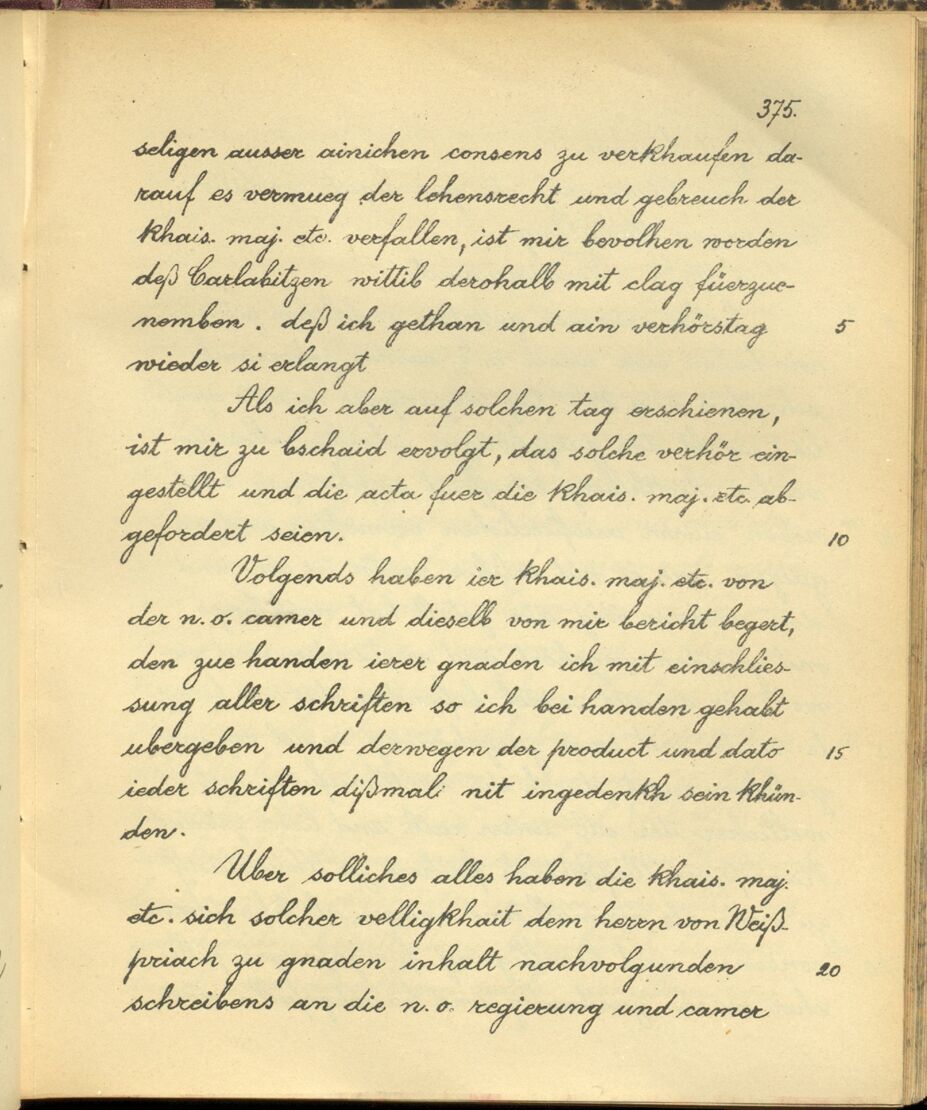 375.
seligen ausser ainichen consens zu verkhaufen da-
rauf es vermueg der lehensrecht und gebreuch der
khais. maj. etc. verfallen, ist mir bevolhen worden
deß Carlabitzen wittib derohalb mit clag füerzue-
nemben. deß ich gethan und ain verhörstag 5
wieder si erlangt
Als ich aber auf solchen tag erschienen,
ist mir zu bschaid ervolgt, das solche verhör ein-
gestellt und die acta fuer die khais. maj. etc. ab-
gefordert seien. 10
Volgends haben ier khais. maj. etc. von
der n. o. camer und dieselb von mir bericht begert,
den zue handen ierer gnaden ich mit einschlies-
sung aller schriften so ich bei handen gehabt
ubergeben und derwegen der product und dato 15
ieder schriften dißmal nit ingedenkh sein khün-
den.
Uber solliches alles haben die khais. maj.
etc. sich solcher velligkhait dem herrn von Weiß-
priach zu gnaden inhalt nachvolgunden 20
schreibens an die n. o. regierung und camer